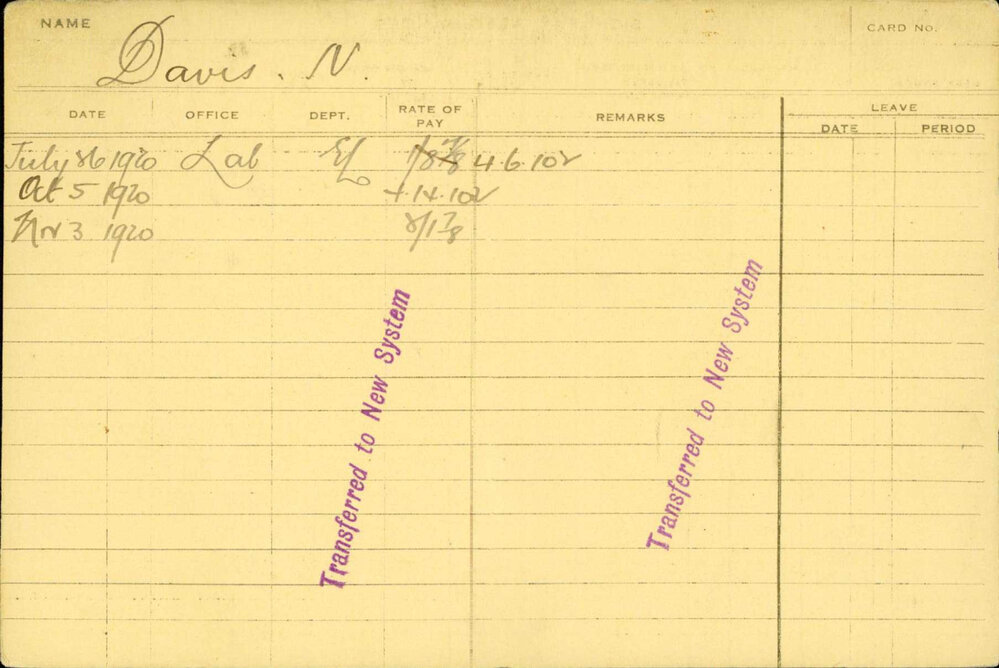 NAME
CARD No.
Davis. N.
DATE OFFICE DEPT. RATE OF PAY REMARKS LEAVE
DATE PERIOD
July 26 1920 Lab EL 1/8 7/8 4.6.10
Oct 5 1920 4.14.10
Nov 3 1920 2/1 7/8
Transferred to New System
Transferred to New System